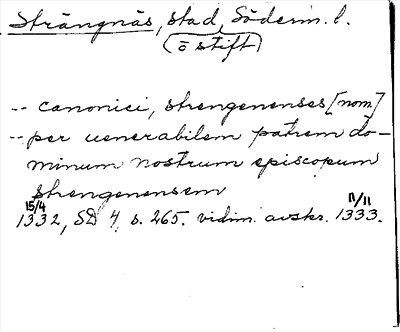 Strängnäs, stad, Söderm. l.
(ō stift)
-- canonici, strengenenses [nom]
-- per uenerabilem patrem do-
minum nostrum episcopum
strengenensem
15/4 11/11
1332, SD 4, s. 265. vidim. avskr. 1333.